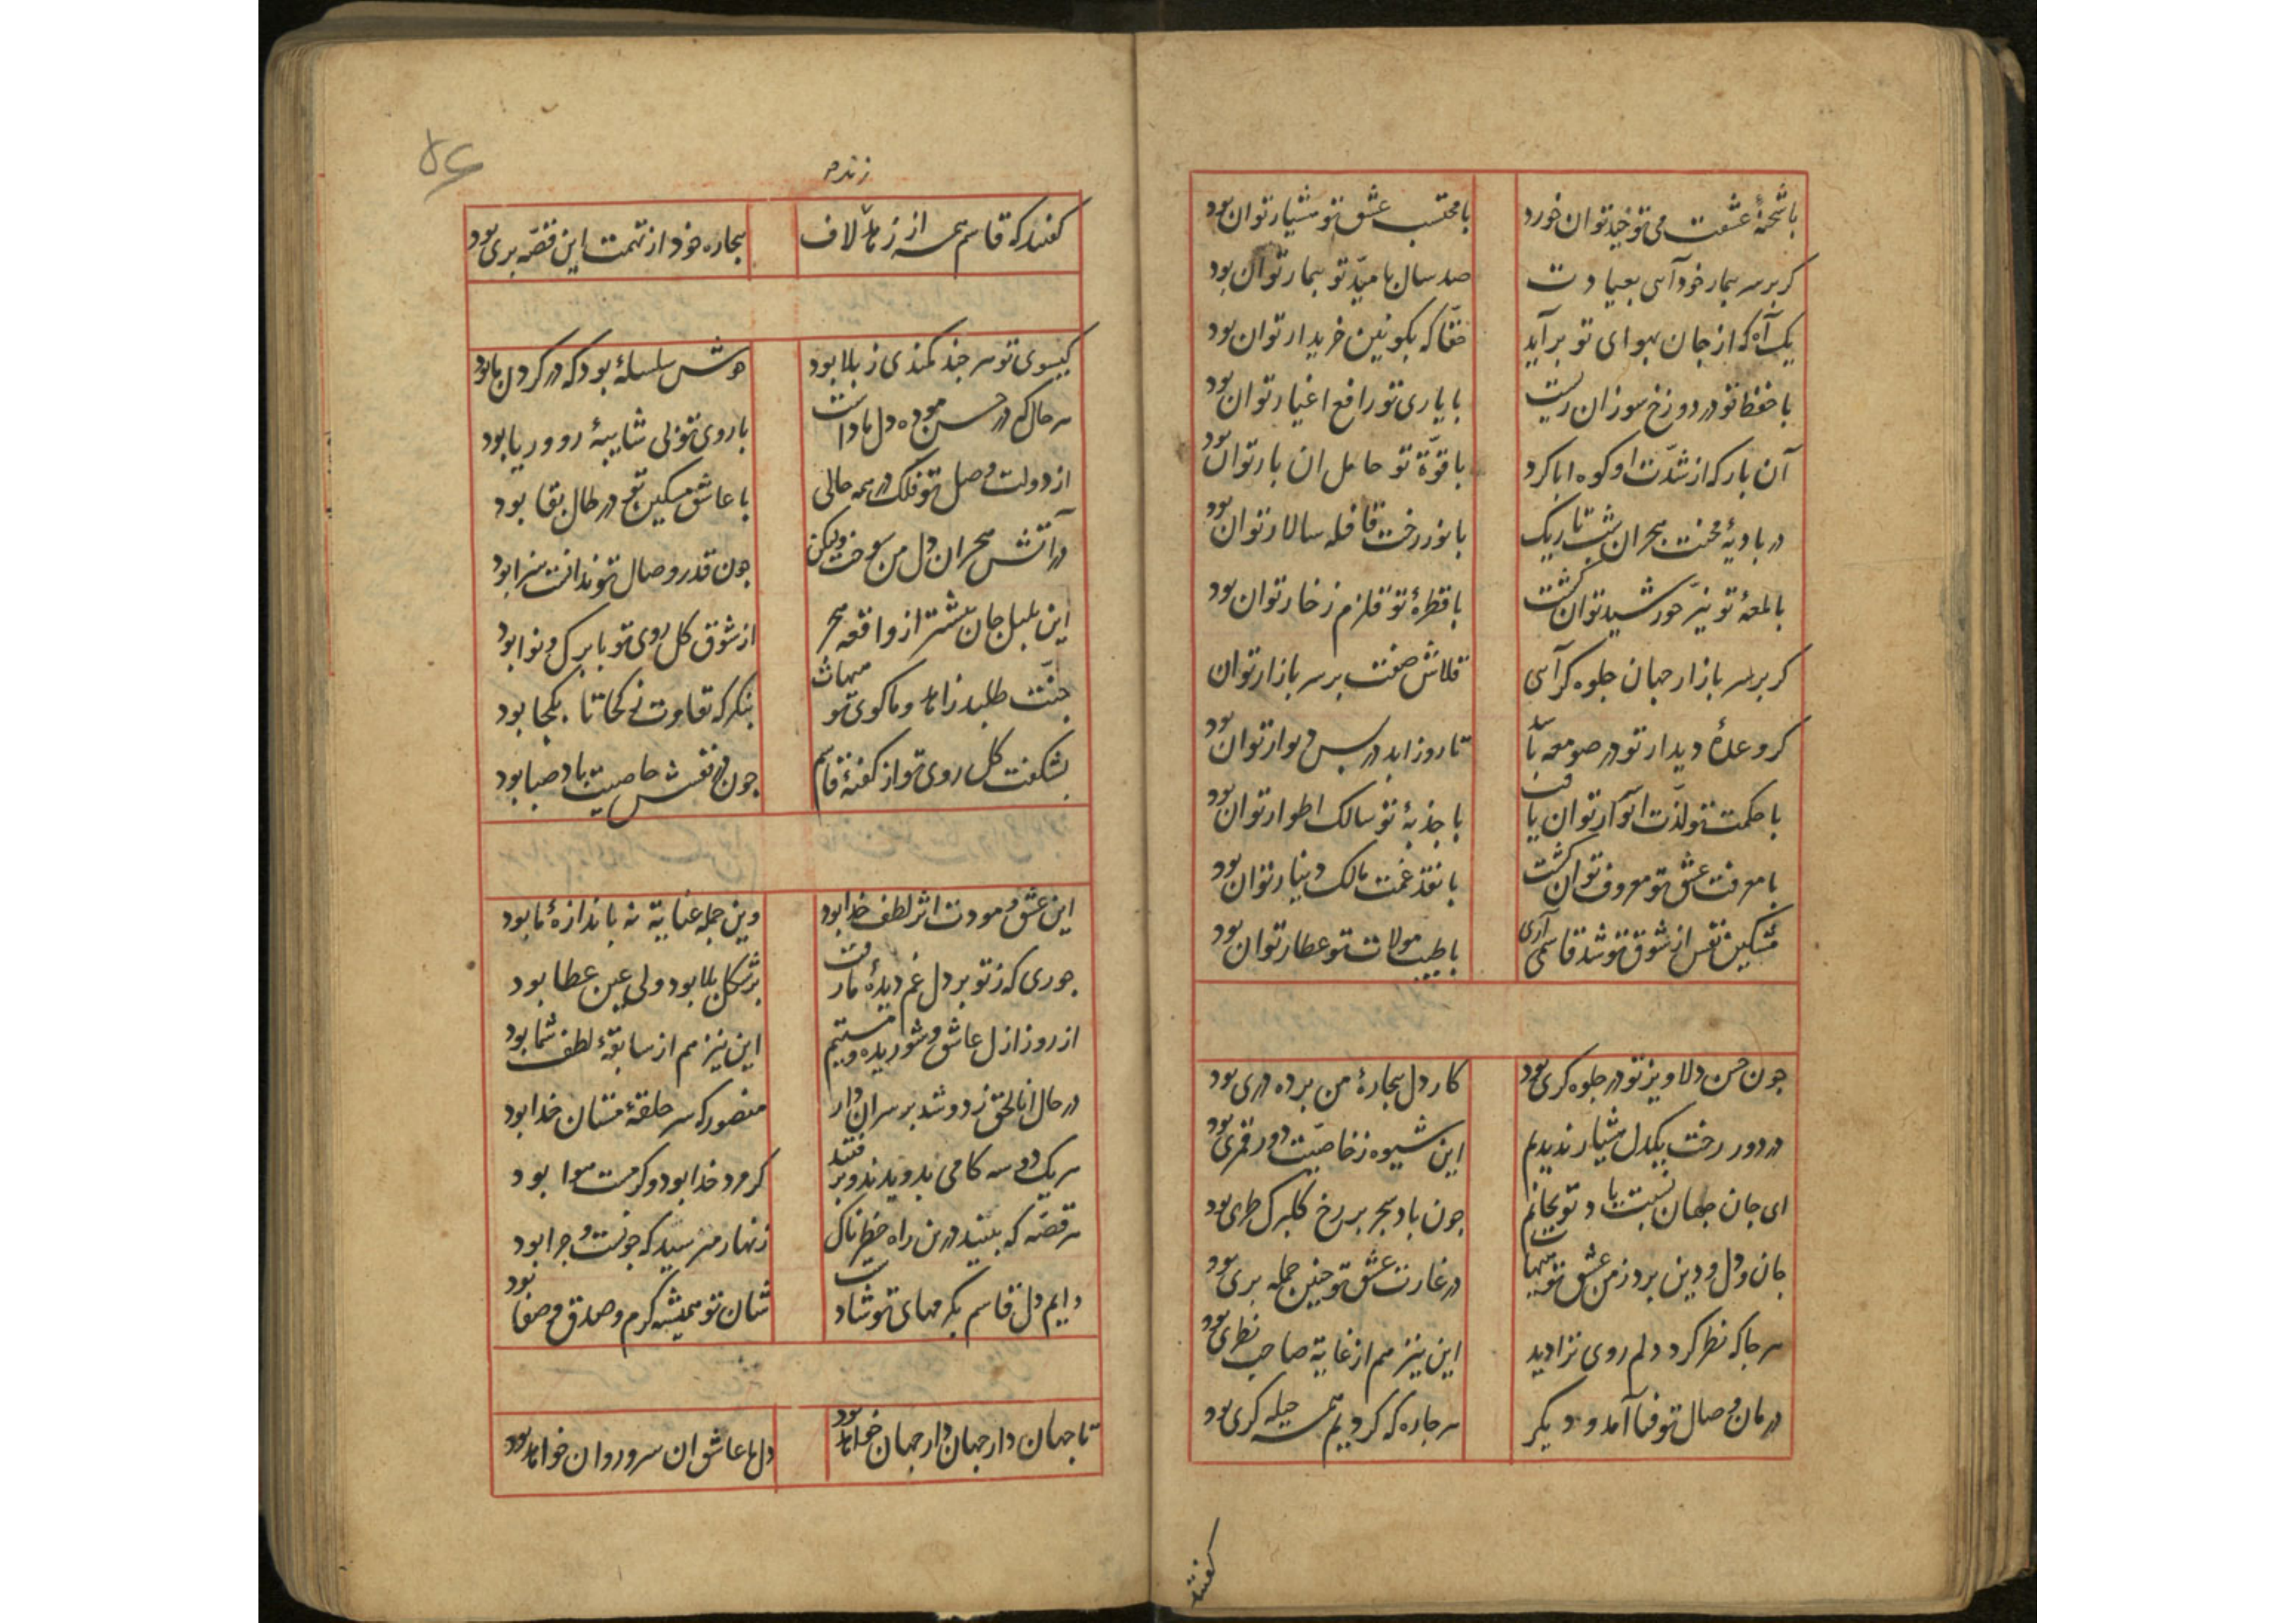 با شحنهٔ عشقت می توحید توان خورد
با محتسب عشق تو هشیار توان بود
کر بر سر بیمار خود آیی بعیادت
صد سال بامید تو بیمار توان بود
یک آه که از جان بهوای تو برآید
حقا که بکونین خریدار توان بود
با حفظ تو در دوزخ سوزان
با یاری تو رافع اغیار توان بود
آن بار که از شدت او کوه ابا کرد
با قوة تو حامل ان بار توان بود
در بادیهٔ محنت هجران شب تاریک
با نور رخت قافله سالار توان بود
با لمعهٔ تو نیر خورشید توان کشت
با قطرهٔ تو قلزم زخار توان بود
کر بر سر بازار جهان جلوه کر آیی
قلاش صفت بر سر بازار توان
کر وعدهٔ دیدار تو در صومعه باشد
تا روز ابد در پس دیوار توان بود
با حکمت تو لذت توان یافت
با جذبهٔ تو سالک اطوار توان بود
با معرفت عشق تو معروف توان کشت
با نقد غمت مالک دینار توان بود
مشکین نفس از شوق تو شد قاسمی آری
با طیب تو عطار توان بود
جون حسن دلاویز تو در جلوه کری بود
کار دل بیجارهٔ من برده دری بود
در دور رخت یکدل هشیار ندیدیم
این شیوه ز خاصیت دور قمری بود
ای جان جهان نسبت یاد تو بجانم
جون باد سحر بر رخ کلبرک طری بود
جان و دل و دین برد ز من عشق تو
در غارت عشق تو جنین جمله بری بود
هر جا که نظر کرد دلم روی ترا دید
این نیز هم از غایة صاحب نظری بود
درمان وصال تو فنا آمد و دیکر
هر جاره که کردیم همه حیله کری بود
کفتند
۵۶
زنده
کفتند که قاسم همه از زد لاف
بیجاره خود از تهمت این قصه بری بود
کیسوی تو هر جند کمندی ز بلا بود
خوش سلسلهٔ بود که در کردن ما بود
هر حال که در حسن تو ده دل ما داشت
با روی تو بی شایبهٔ رو و ریا بود
از دولت وصل تو فلک در همه حالی
با عاشق مسکین تو در حال بقا بود
در آتش هجران دل من سوخت ولیکن
جون قدر وصال تو ندانست سزا بود
این بلبل جان بیشتر از واقعه هجر
از شوق کل روی تو با برک و نوا بود
جنت طلبد زاهد و ما کوی تو
بنکر که تفاوت ز کجا تا بکجا بود
بشکفت کل روی تو از کفتهٔ قاسم
جون در نفسش خاصیت باد صبا بود
این عشق و مودت اثر لطف خدا بود
وین جمله عنایة نه باندازهٔ ما بود
جوری که ز تو بر دل غم دیدهٔ ما رفت
بر شکل بلا بود ولی عین عطا بود
از روز ازل عاشق و شوریده و مستیم
این نیز هم از سابقهٔ لطف شما بود
در حال انا الحق زد و شد بر سر آن دار
منصور که سر حلقهٔ مستان خدا بود
هر یک دو سه کامی بدویدند و برفتند
کر مرد خدا بود و کر مست هوا بود
هر قصه که بینید درین راه خطرناک
زنهار مپرسید که جونست و جرا بود
دایم دل قاسم بکرمهای تو شاد است
شان تو همیشه کرم و صدق و صفا بود
تا جهان دار جهان دار جهان خواهد بود
دل ما عاشق ان سرو روان خواهد بود